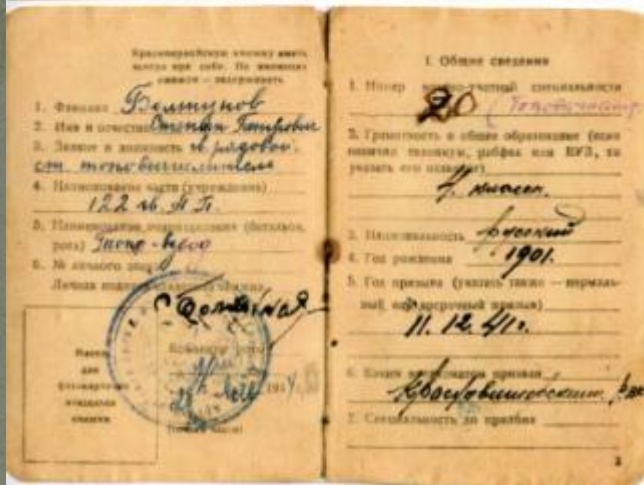 Красноармейскую книжку иметь
всегда при себе. Не имеющих
книжек — задерживать.
1. Фамилия Болтунов
2. Имя и отчество Степан Петрович
3. Звание и должность гв. рядовой,
ст. топовычислитель
4. Наименование части (учреждения)
122 гв. А П.
5. Наименование подразделения (батальон,
рота) Топо-взвод
6. № личного знака
Личная подпись
Командир
Место
для
фотокарточки
владельца
книжки
194
I. Общие сведения
1. Номер военно-учетной специальности
20
2. Грамотность и общее образование (если
окончил техникум, рабфак или ВУЗ, то
указать его название)
4 класса.
3. Национальность русский
4. Год рождения 1901.
5. Год призыва (указать также — нормаль-
ный, или досрочный призыв)
11.12.41г.
6. Каким военкоматом призван
7. Специальность до призыва
3